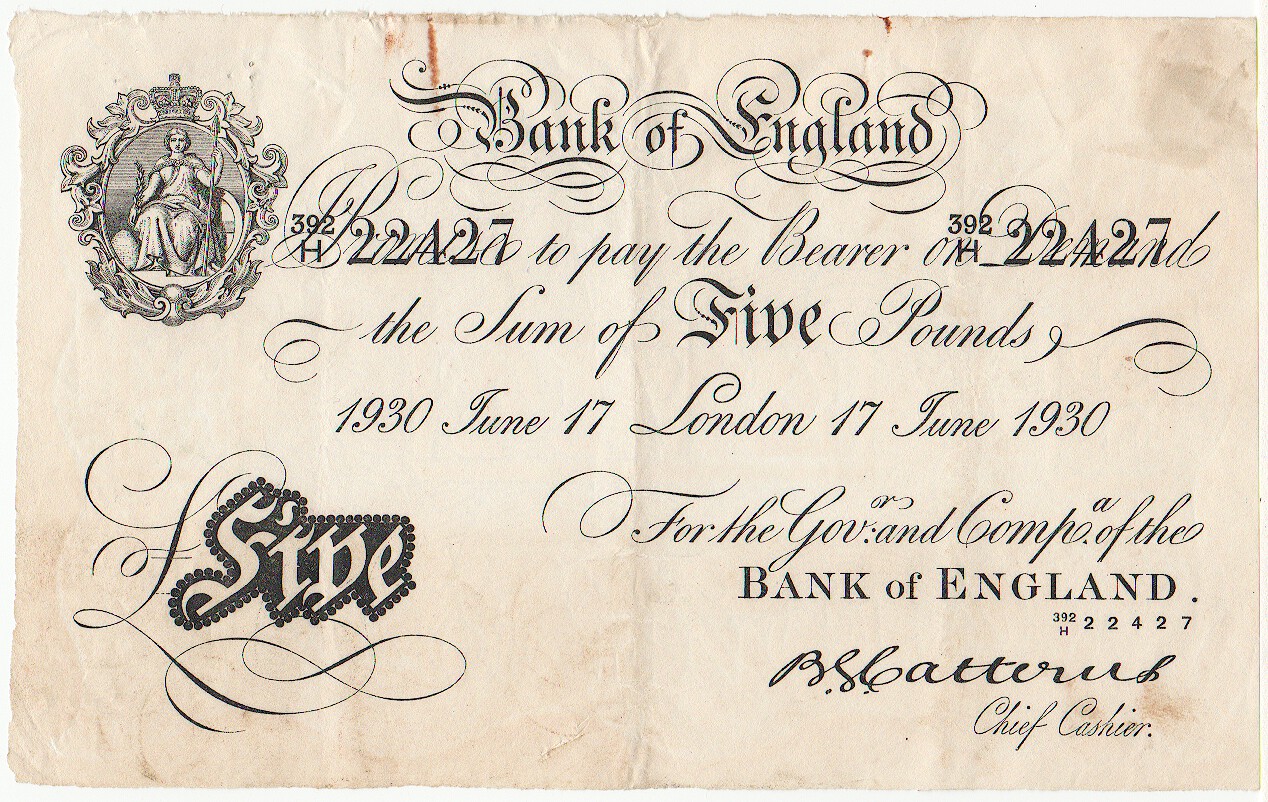 Bank of England
392
H 22427 392
H 22427
I Promise to pay the Bearer on Demand
the Sum of Five Pounds
1930 June 17 London 17 June 1930
For the Gov.r and Comp.a of the
BANK of ENGLAND.
392
H 22427
£ Five
B.G. Catterns
Chief Cashier.